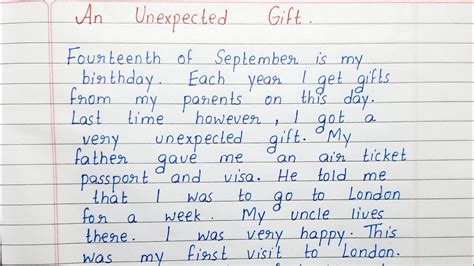 An Unexpected Gift.
Fourteenth of September is my
birthday. Each year I get gifts
from my parents on this day.
Last time however, I got a
very unexpected gift. My
father gave me an air ticket
passport and visa. He told me
that I was to go to London
for a week. My uncle lives
there. I was very happy. This
was my first visit to London.